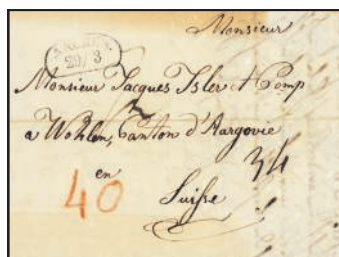 Monsieur
29/3
Monsieur Jacques Isler et Comp
a Wohlen, Canton d'Aargovie
34
en
40
Suisse